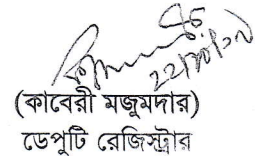 (কাবেরী মজুমদার)
ডেপুটি রেজিস্ট্রার